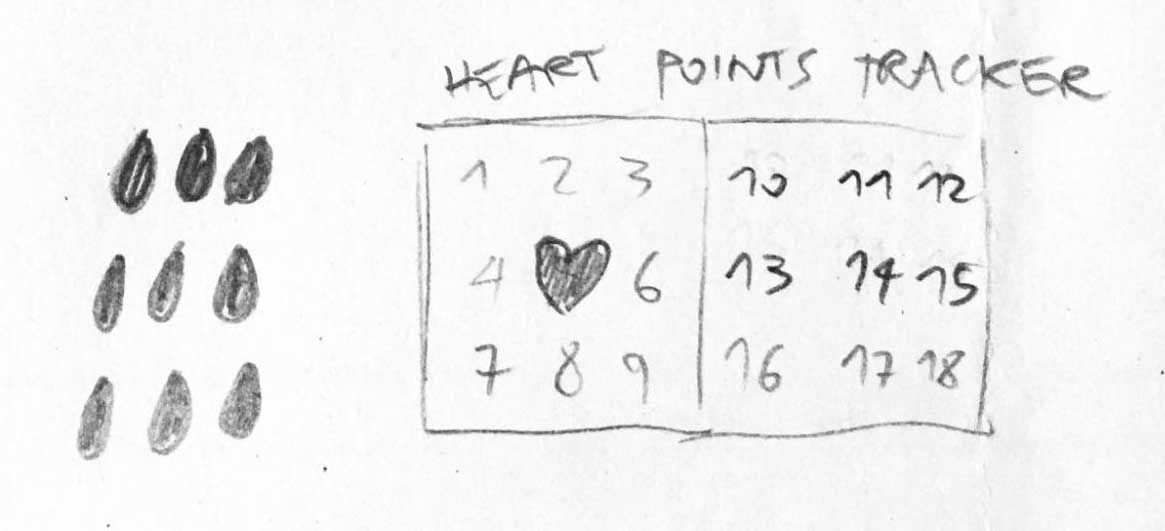 HEART POINTS TRACKER
1 2 3 10 11 12
4 6 13 14 15
7 8 9 16 17 18